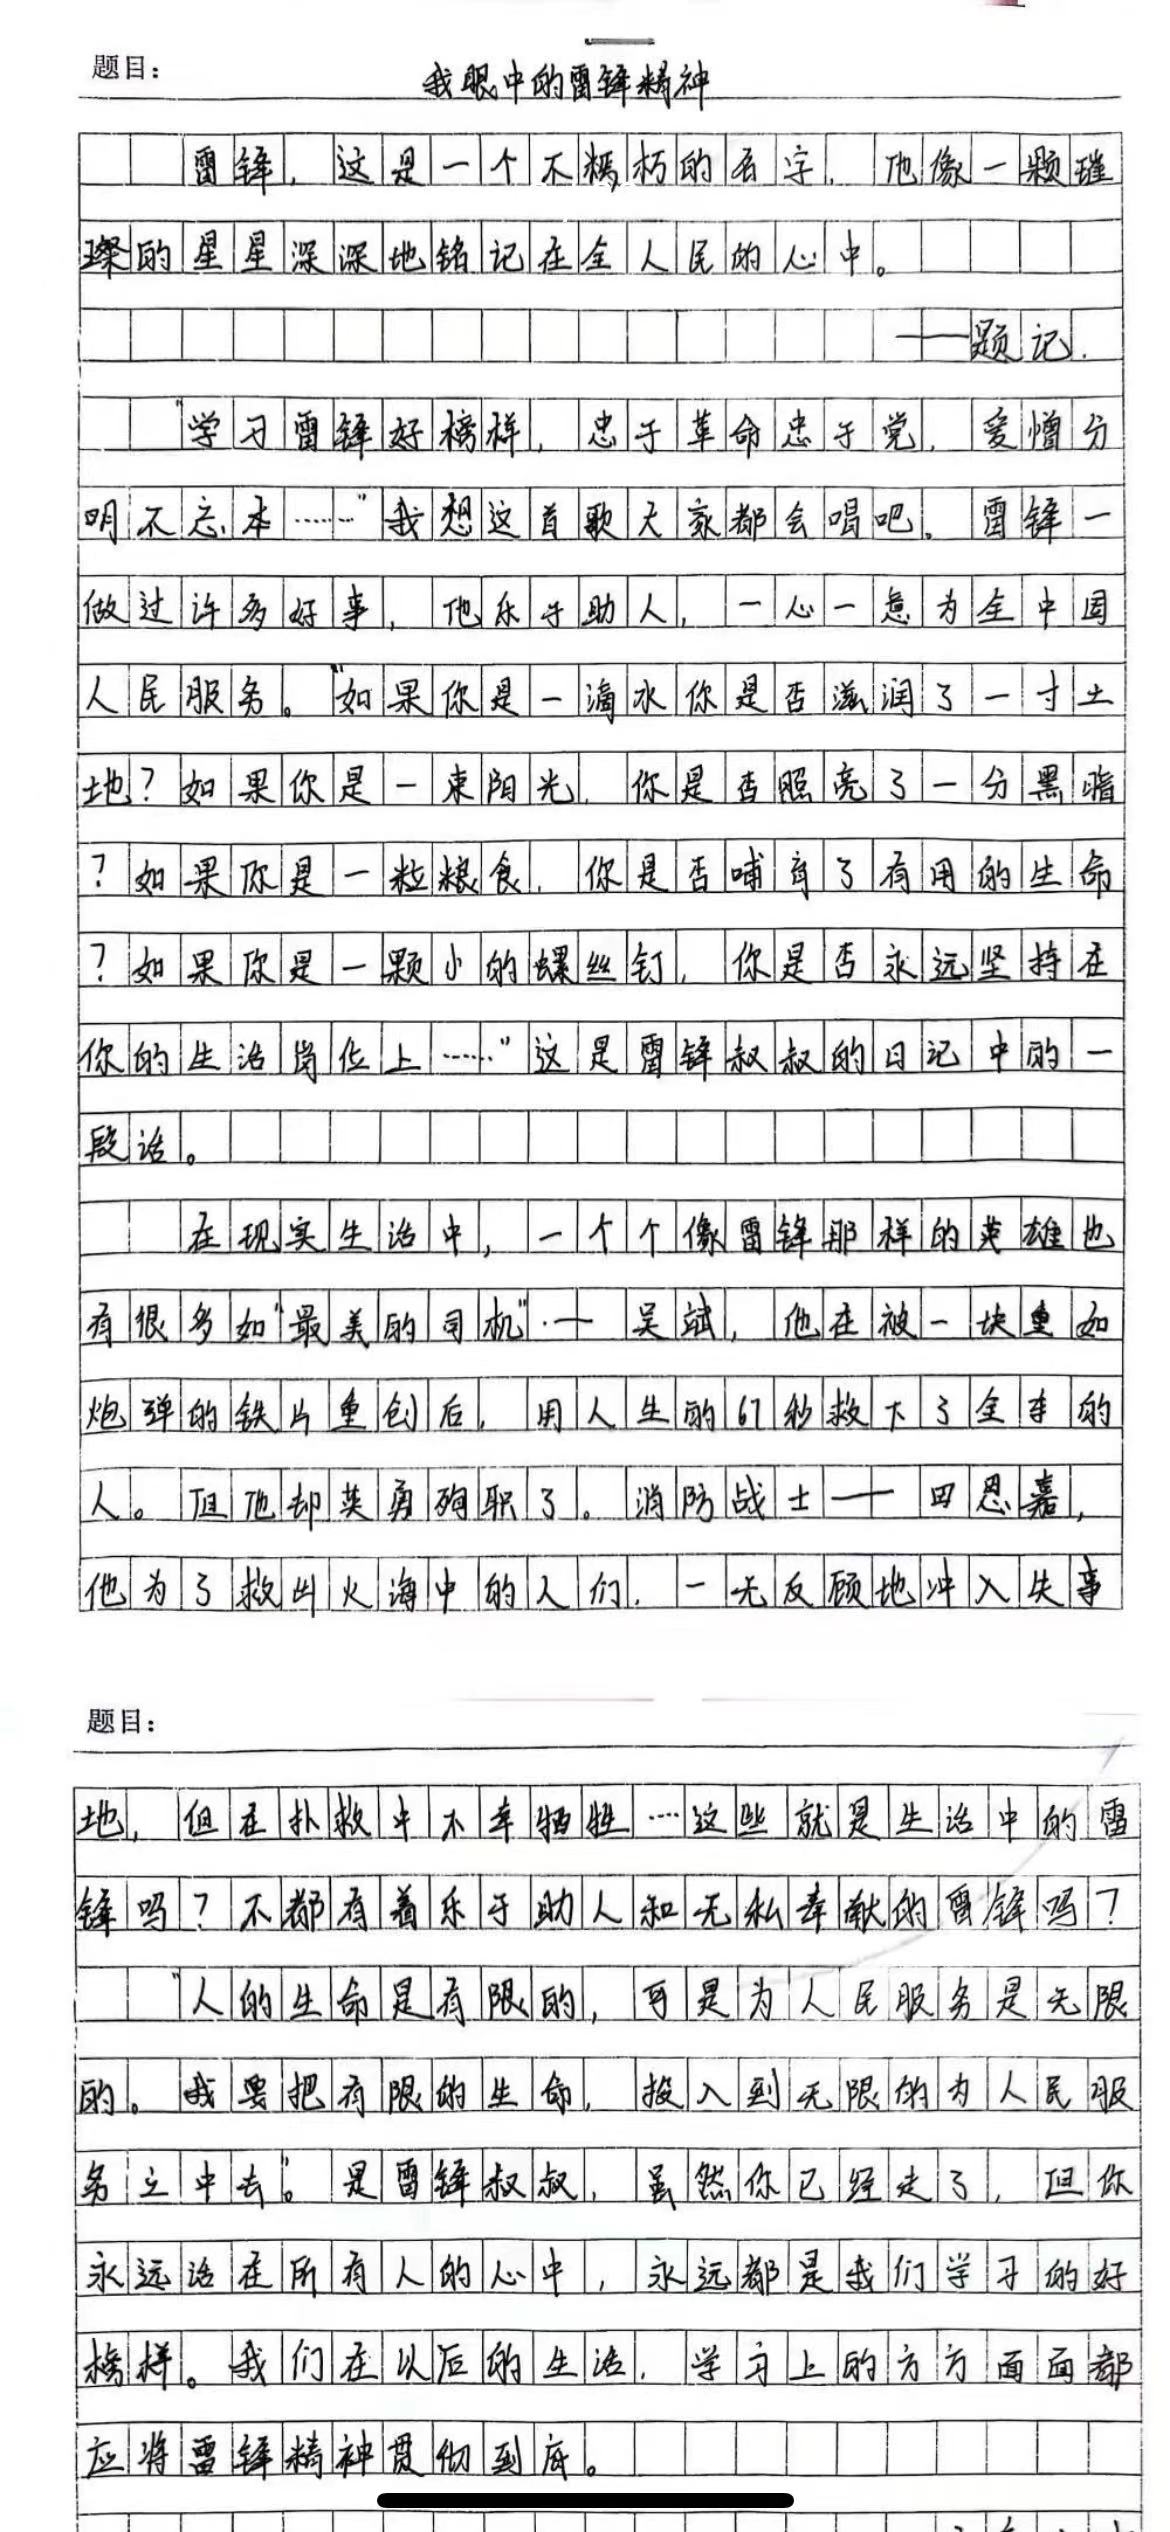 题目：
我眼中的雷锋精神
雷锋，这是一个不朽的名字，他像一颗璀
璨的星星深深地铭记在全人民的心中。
——题记.
“学习雷锋好榜样，忠于革命忠于党，爱憎分
明不忘本……”我想这首歌大家都会唱吧。雷锋一
做过许多好事，他乐于助人，一心一意为全中国
人民服务。“如果你是一滴水你是否滋润了一寸土
地？如果你是一束阳光，你是否照亮了一分黑暗
？如果你是一粒粮食，你是否哺育了有用的生命
？如果你是一颗小的螺丝钉，你是否永远坚持在
你的生活岗位上……”这是雷锋叔叔的日记中的一
段话。
在现实生活中，一个个像雷锋那样的英雄也
有很多如“最美的司机”·一吴斌，他在被一块重如
炮弹的铁片重创后，用人生的67秒救下了全车的
人。但他却英勇殉职了。消防战士——田思嘉，
他为了救出火海中的人们，一无反顾地冲入失事
题目：
地，但在扑救中不幸牺牲……这些就是生活中的雷
锋吗？不都有着乐于助人和无私奉献的雷锋吗？
“人的生命是有限的，可是为人民服务是无限
的。我要把有限的生命，投入到无限的为人民服
务之中去”。是雷锋叔叔，虽然你已经走了，但你
永远活在所有人的心中，永远都是我们学习的好
榜样。我们在以后的生活，学习上的方方面面都
应将雷锋精神贯彻到底。